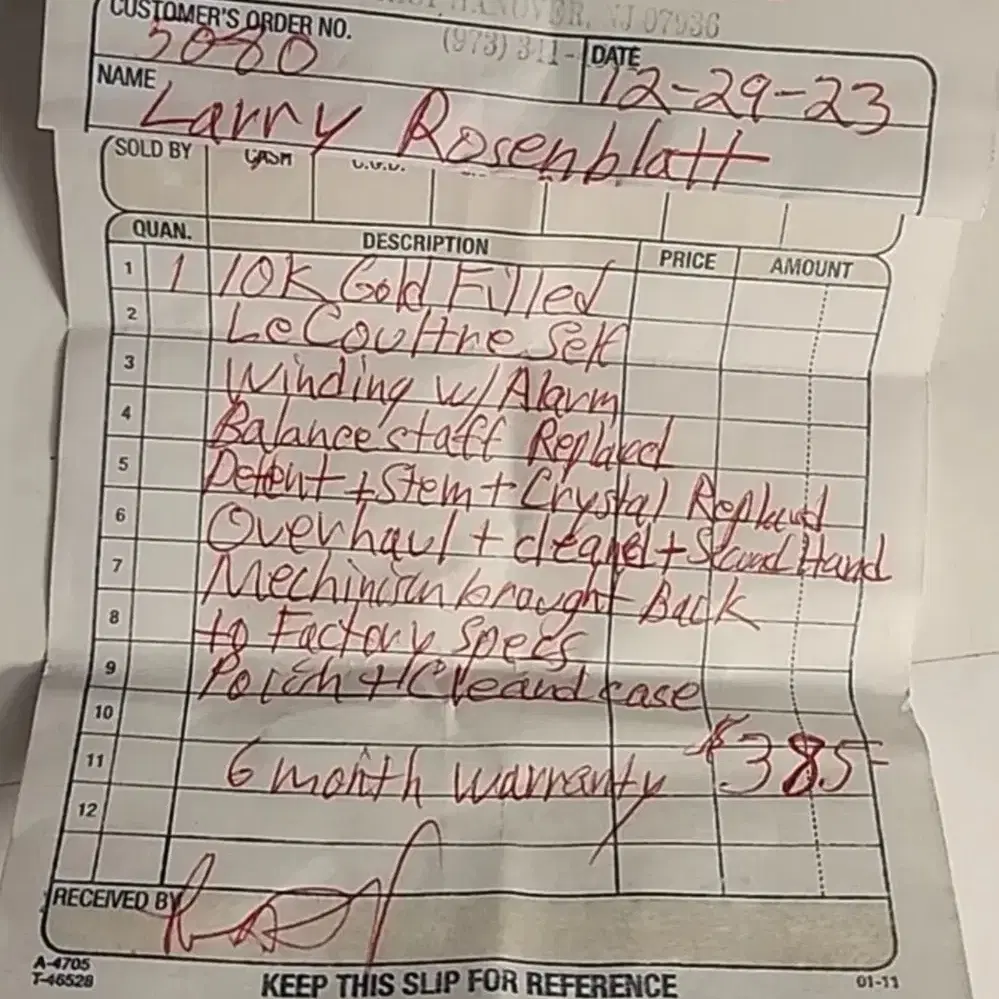 HANOVER, NJ 07936
CUSTOMER'S ORDER NO.
(973) 311-
DATE
5080
12-29-23
NAME
Larry Rosenblatt
SOLD BY CASH C.O.D.
QUAN. DESCRIPTION PRICE AMOUNT
1 1 10K Gold Filled
2 LeCoultre Self
3 Winding w/ Alarm
4 Balance staff Replaced
5 Detent + Stem + Crystal Replaced
6 Overhaul + cleaned + Second Hand
7 Mechinism brought Back
8 to Factory Specs
9 Polish + Cleand case
10
11 6 month warranty $385-
12
RECEIVED BY
A-4705
T-46528
KEEP THIS SLIP FOR REFERENCE
01-11